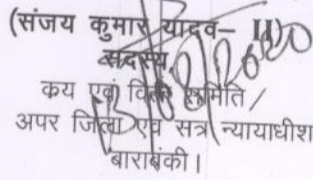 (संजय कुमार यादव– II)
सदस्य,
कय एवं वित्त समिति /
अपर जिला एवं सत्र न्यायाधीश
बाराबंकी।